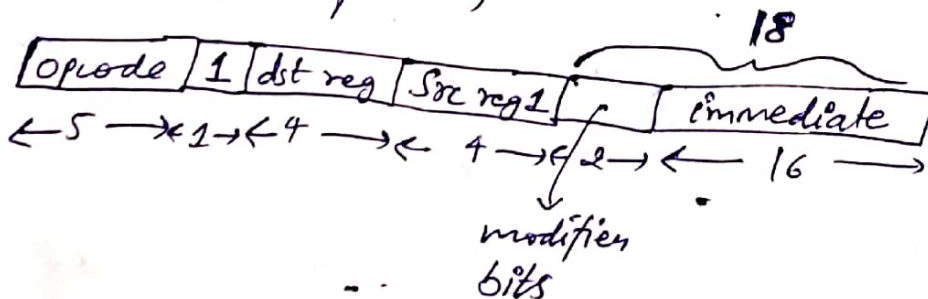 18
opcode 1 dst reg Src reg1 immediate
5 1 4 4 2 16
modifier
bits